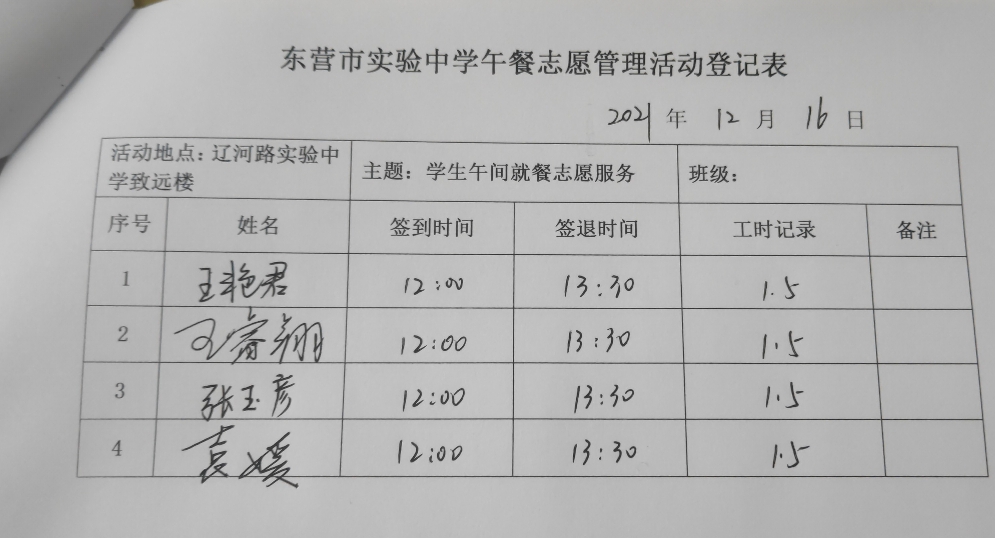 东营市实验中学午餐志愿管理活动登记表
2021 年 12 月 16 日
活动地点：辽河路实验中
学致远楼
主题：学生午间就餐志愿服务
班级：
序号 姓名 签到时间 签退时间 工时记录 备注
1 王艳君 12:00 13:30 1.5
2 王睿翎 12:00 13:30 1.5
3 张玉彦 12:00 13:30 1.5
4 袁媛 12:00 13:30 1.5